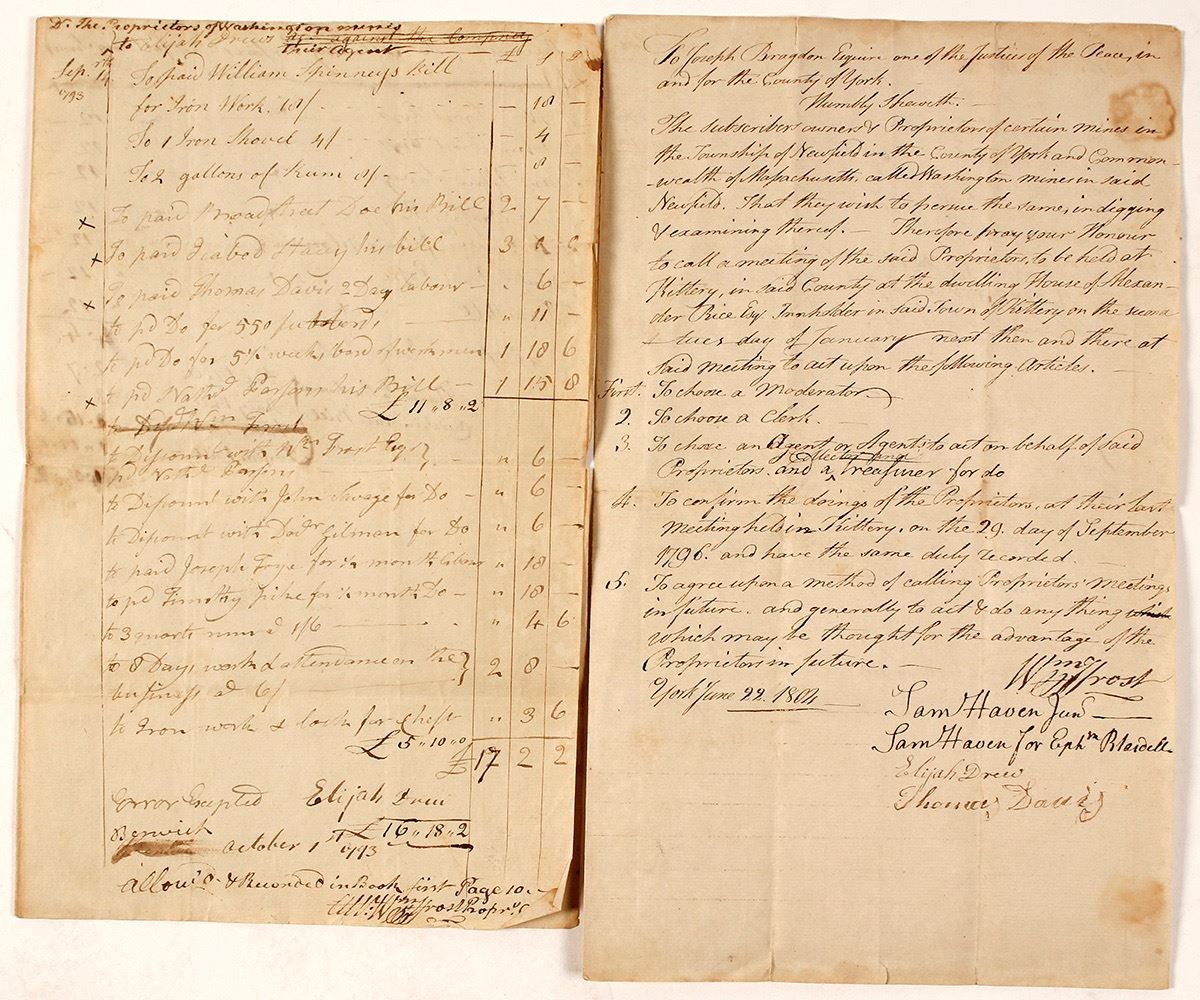 Dr. The Proprietors of Washington mines
to Elijah Drew as against the Company
their agent £ s d
Sep. 14th To paid William Spinneys Bill
1793 for Iron Work. 18/ - 18 -
To 1 Iron Shovel 4/ - 4 -
To 2 gallons of Rum 8/ - 8 -
x To paid Broadstreet Doe his Bill 2 7 -
x To paid Icabod Stacey his bill 3
x To paid Thomas Davis 2 Day labour - 6 -
to pd Do for 550 " 11 -
to pd Do for 5½ weeks bord of workmen 1 18 6
x to pd Nathel Parsons his Bill - 1 15 8
£ 11 " 8 " 2
to Wm Frost
to Discount with Wm Frost Esq } " 6 -
pd Nathl Parsons
to Discount with John Savage for Do - " 6 -
to Discount with Gilman for Do " 6 -
to paid Joseph Foye for ½ month labour " 18 -
to pd Timothy for ½ month Do - " 18 -
to 3 quarts rum a 1/6 " 4 6
to 8 Days work & attendance on the } 2 8 -
business a 6/
to Iron work & lock for Chest " 3 6
£ 5 " 10 " 0
£ 17 2 2
Error Excepted Elijah Drew
Berwick £ 16 " 18 " 2
October 1st 1793
allowd & Recorded in Book first Page 10.
Att: Wm Frost Proprs C
To Joseph Bragdon Esquire one of the Justices of the Peace, in
and for the County of York.
Humbly Sheweth.
The subscribers owners & Proprietors of certain mines in
the Township of Newfield in the County of York and Common-
-wealth of Massachusetts, called Washington mines in said
Newfield. That they wish to persue the same, in digging
& examining thereof. - Therefore pray your Honour
to call a meeting of the said Proprietors, to be held at
Kittery, in said County at the dwelling House of Alexan-
der Rice Esqr Innholder in said Town of Kittery on the second
tues day of January next then and there at
said meeting to act upon the following Articles. -
First. To choose a Moderator
2. To choose a Clerk. -
3. To chose an Agent or Agents to act on behalf of said
Proprietors. and a Treasurer for do
4. To confirm the doings of the Proprietors, at their last
meeting held in Kittery, on the 29. day of September
1796. and have the same duly recorded.
5. To agree upon a method of calling Proprietors meetings
in future. and generally to act & do any thing which
which may be thought for the advantage of the
Proprietors in future. -
Wm Frost
York June 22. 1804
Sam Haven Junr
Sam Haven for Ephm Blaisdell
Elijah Drew
Thomas Davis